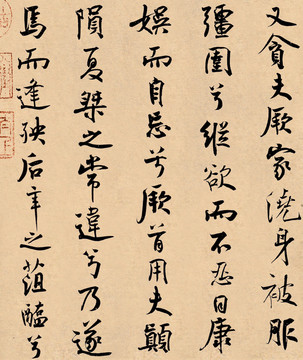 又貪夫厥家澆身被服
彊圉兮縱欲而不忍日康
娛而自忘兮厥首用夫顛
隕夏桀之常違兮乃遂
焉而逢殃后辛之菹醢兮